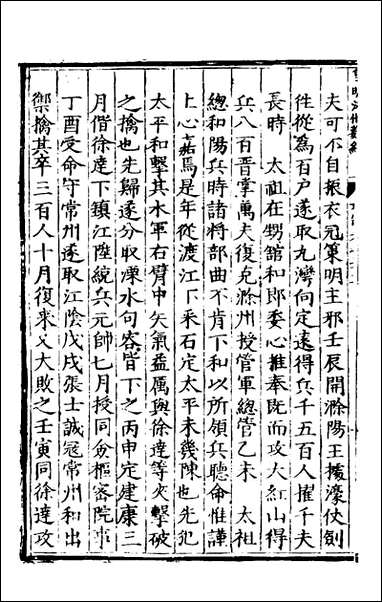 夫可不自振衣冠策明主邪壬辰開滁陽王據濠仗劍
徃從爲百戶遂取九灣向定遠得兵千五百人擢千夫
長時　太祖在甥舘和卽委心推奉既而攻大紅山得
兵八百晋掌萬夫復克滁州授管軍總管乙未　太祖
總和陽兵時諸將部曲不肯下和以所領兵聽命惟謹
上心焉是年從渡江下采石定太平未幾陳也先犯
太平和擊其水軍右臂中矢氣益厲與徐達等夾擊破
之擒也先歸遂分取溧水句容皆下之丙申定建康三
月偕徐達下鎮江陞統兵元帥七月授同僉樞密院事
丁酉受命守常州遂取江陰戊戌張士誠寇常州和出
禦擒其卒三百人十月復来又大敗之壬寅同徐達攻